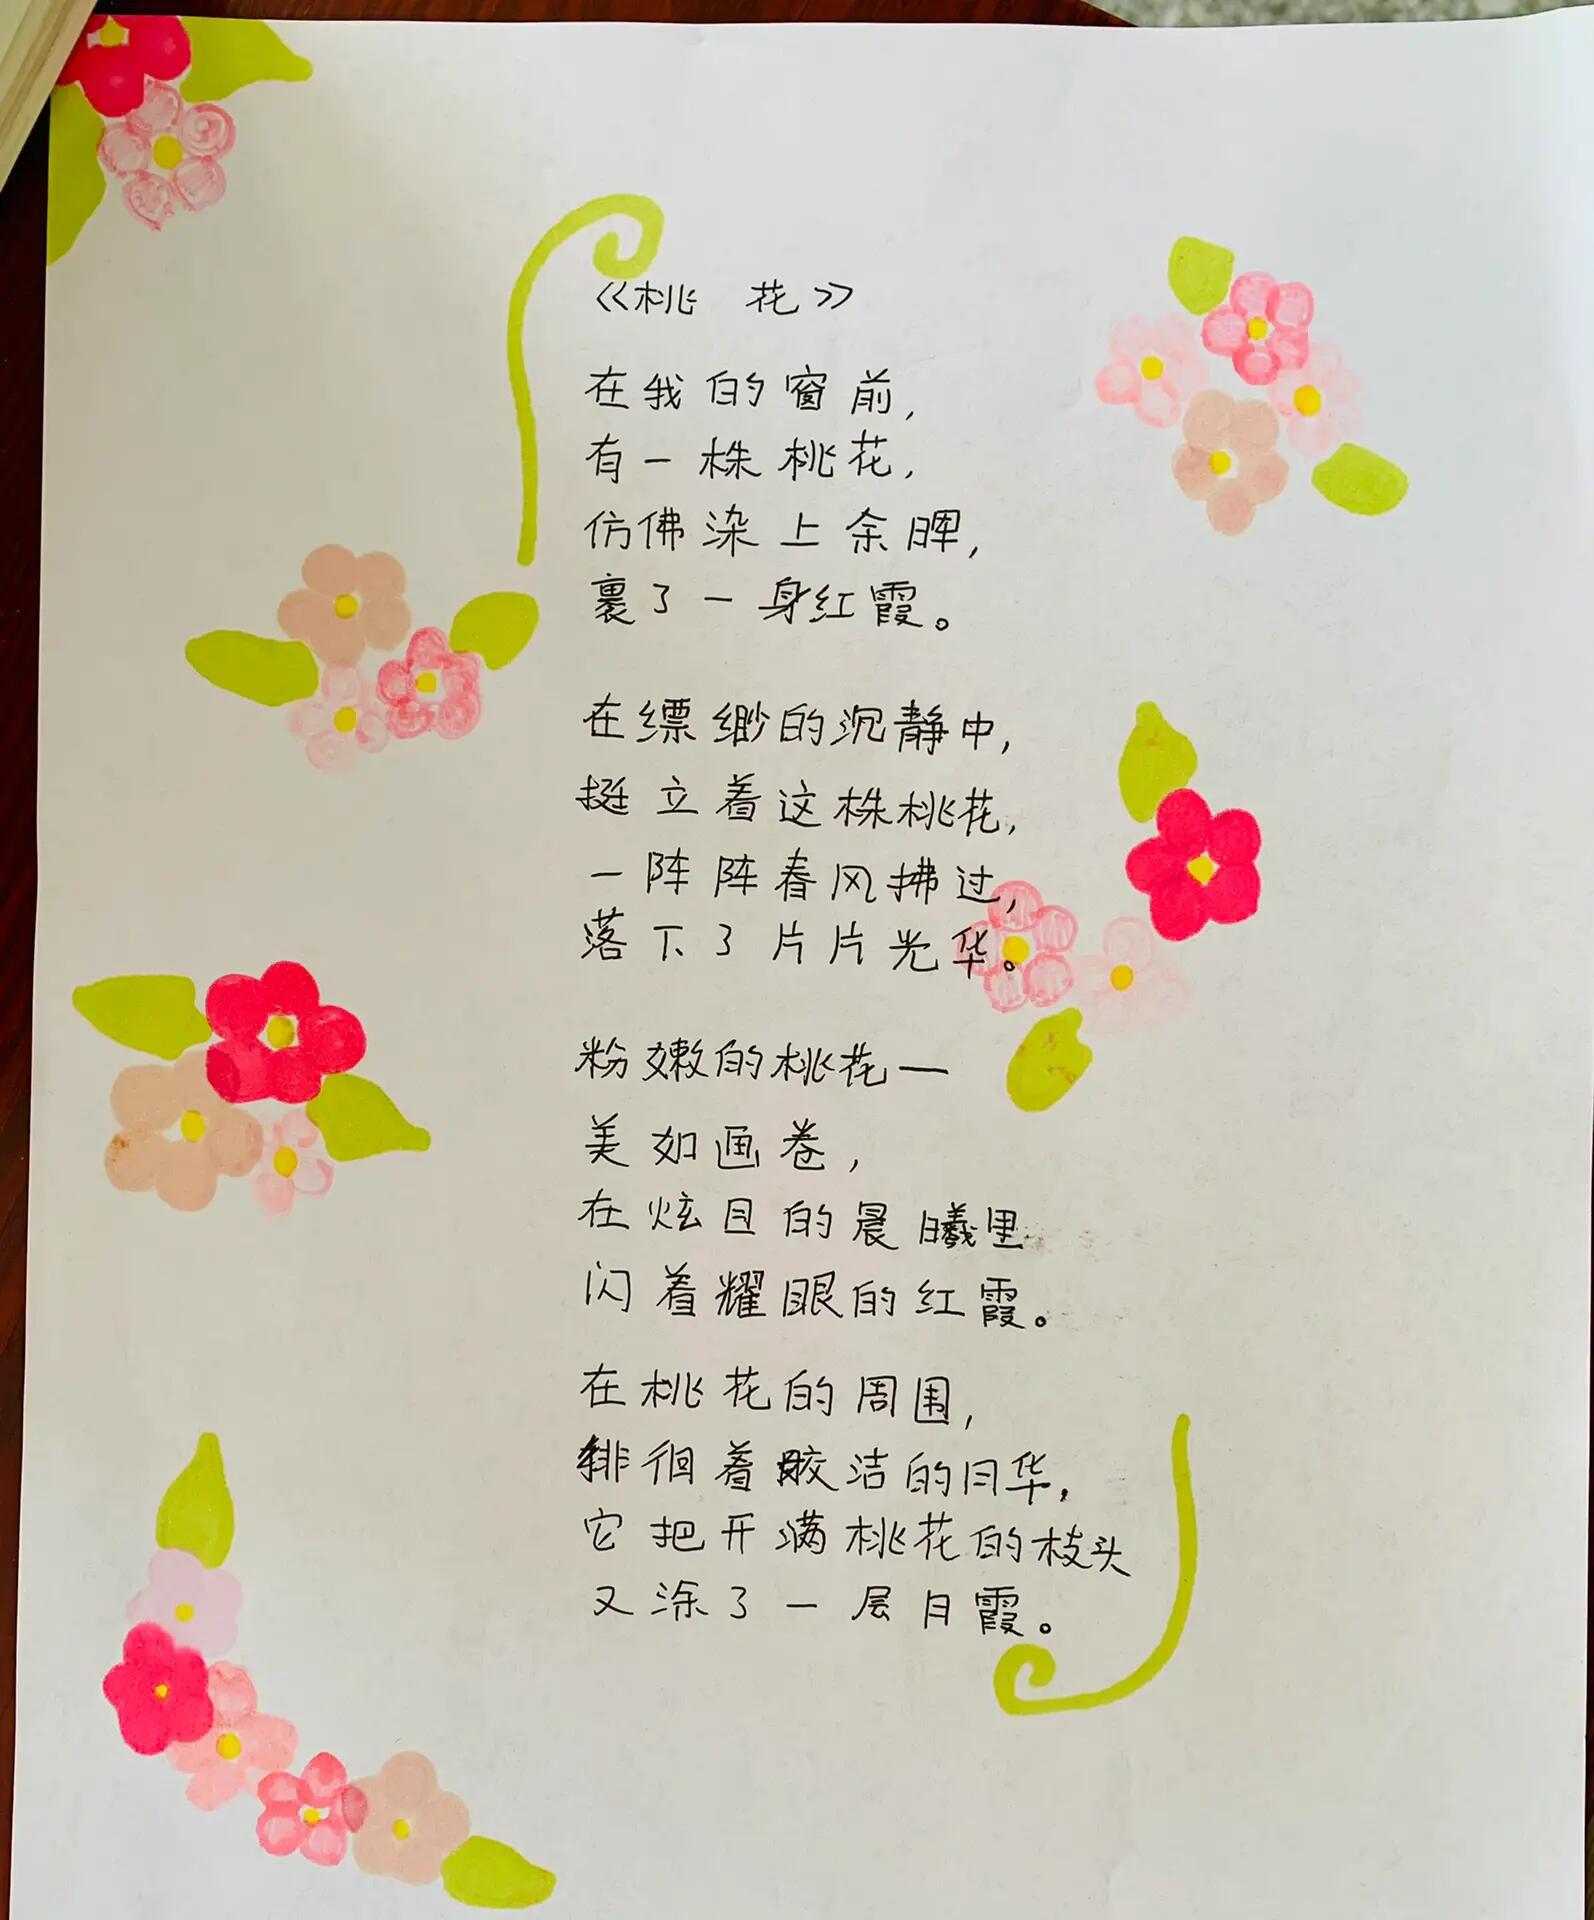 《桃 花》
在我的窗前，
有一株桃花，
仿佛染上余晖，
裹了一身红霞。
在缥缈的沉静中，
挺立着这株桃花，
一阵阵春风拂过，
落下了片片光华。
粉嫩的桃花—
美如画卷，
在炫目的晨曦里
闪着耀眼的红霞。
在桃花的周围，
徘徊着皎洁的月华，
它把开满桃花的枝头
又涂了一层月霞。